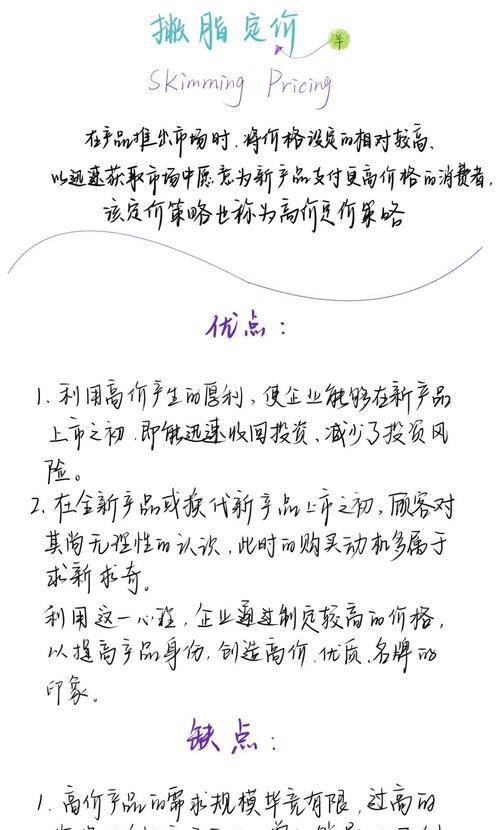 撇脂定价
半
Skimming Pricing
在产品推出市场时，将价格设定的相对较高、
以迅速获取市场中愿意为新产品支付更高价格的消费者，
该定价策略也称为高价定价策略
优点：
1. 利用高价产生的厚利，使企业能够在新产品
上市之初，即能迅速收回投资、减少了投资风
险。
2. 在全新产品或换代新产品上市之初，顾客对
其尚无理性的认识，此时的购买动机多属于
求新求奇。
利用这一心理，企业通过制定较高的价格，
以提高产品身份，创造高价、优质、名牌的
印象。
缺点：
1. 高价产品的需求规模毕竟有限，过高的